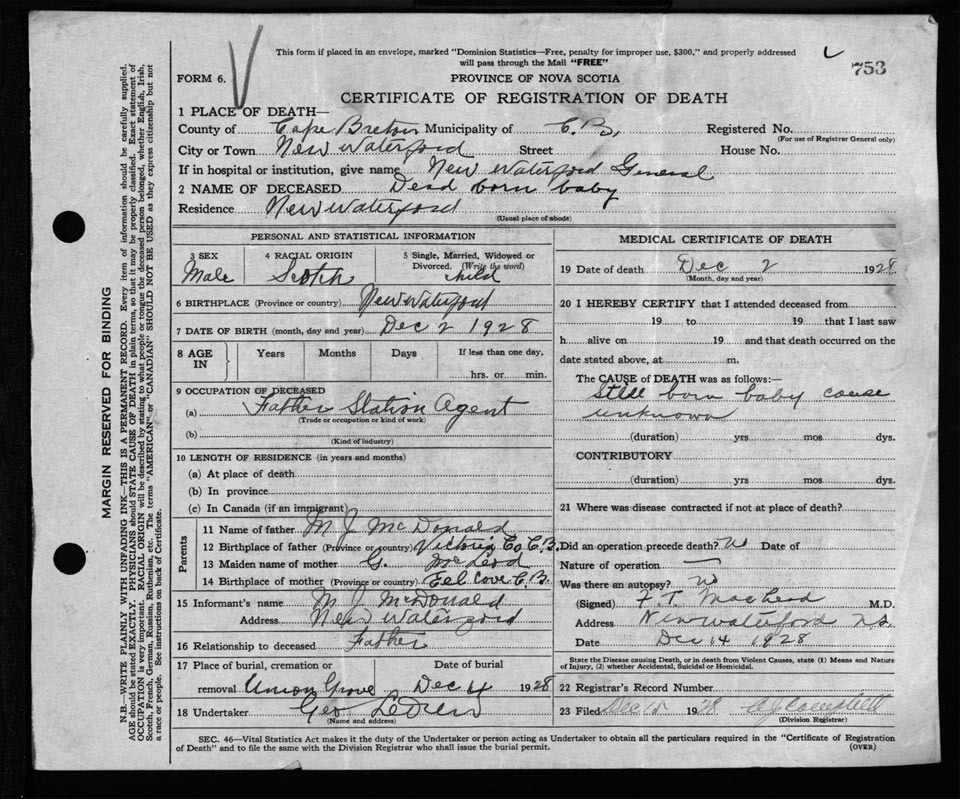 This form if placed in an envelope, marked "Dominion Statistics—Free, penalty for improper use, $300," and properly addressed
will pass through the Mail "FREE"
753
FORM 6.
PROVINCE OF NOVA SCOTIA
CERTIFICATE OF REGISTRATION OF DEATH
1 PLACE OF DEATH—
County of Cape Breton Municipality of C.B. Registered No.
(For use of Registrar General only)
City or Town New Waterford Street House No.
If in hospital or institution, give name New Waterford General
2 NAME OF DECEASED Dead born baby
Residence New Waterford
(Usual place of abode)
PERSONAL AND STATISTICAL INFORMATION
3 SEX 4 RACIAL ORIGIN 5 Single, Married, Widowed or
Divorced. (Write the word)
Male Scotch child
6 BIRTHPLACE (Province or country) New Waterford
7 DATE OF BIRTH (month, day and year) Dec 2 1928
8 AGE IN Years Months Days If less than one day,
hrs. or min.
9 OCCUPATION OF DECEASED
(a) Father Station Agent
(Trade or occupation or kind of work)
(b)
(Kind of industry)
10 LENGTH OF RESIDENCE (in years and months)
(a) At place of death
(b) In province
(c) In Canada (if an immigrant)
Parents
11 Name of father M J McDonald
12 Birthplace of father (Province or country) Victoria Co C.B.
13 Maiden name of mother G. McLeod
14 Birthplace of mother (Province or country) Eel Cove C.B.
15 Informant's name M J McDonald
Address New Waterford
16 Relationship to deceased Father
17 Place of burial, cremation or Date of burial
removal Union Grove Dec 4 1928
18 Undertaker Geo
(Name and address)
MEDICAL CERTIFICATE OF DEATH
19 Date of death Dec 2 1928
(Month, day and year)
20 I HEREBY CERTIFY that I attended deceased from
19 to 19 that I last saw
h alive on 19 and that death occurred on the
date stated above, at m.
The CAUSE of DEATH was as follows:—
Still born baby cause
unknown
(duration) yrs mos dys.
CONTRIBUTORY
(duration) yrs mos dys.
21 Where was disease contracted if not at place of death?
Did an operation precede death? No Date of
Nature of operation —
Was there an autopsy? No
(Signed) F. T. MacLeod M.D.
Address New Waterford N.S.
Date Dec 14 1928
State the Disease causing Death, or in death from Violent Causes, state (1) Means and Nature
of Injury, (2) whether Accidental, Suicidal or Homicidal.
22 Registrar's Record Number
23 Filed Dec 19 Campbell
(Division Registrar)
SEC. 46—Vital Statistics Act makes it the duty of the Undertaker or person acting as Undertaker to obtain all the particulars required in the "Certificate of Registration
of Death" and to file the same with the Division Registrar who shall issue the burial permit.
(OVER)
MARGIN RESERVED FOR BINDING
N.B.—WRITE PLAINLY WITH UNFADING INK—THIS IS A PERMANENT RECORD. Every item of information should be carefully supplied.
AGE should be stated EXACTLY. PHYSICIANS should STATE CAUSE OF DEATH in plain terms, so that it may be properly classified. Exact statement of
OCCUPATION is very important. RACIAL ORIGIN will be described by stating to what people or tongue the deceased person belonged, whether English, Irish,
Scotch, French, German, Russian, Ruthenian, etc. The terms "AMERICAN" or "CANADIAN" SHOULD NOT BE USED as they express citizenship but not
a race or people. See instructions on back of Certificate.